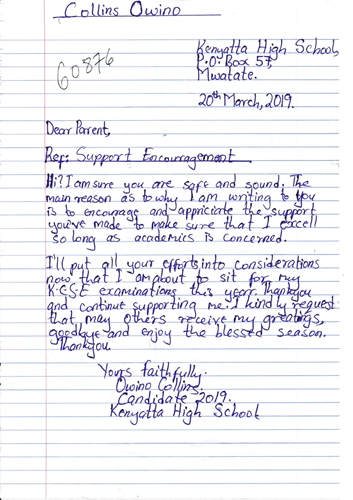 Collins Owino
60876
Kenyatta High School,
P.O. Box 57,
Mwatate.
20th March, 2019.
Dear Parent,
Rep: Support Encouragement
Hi? I am sure you are safe and sound. The
main reason as to why I am writing to you
is to encourage and appriciate the support
you've made to make sure that I excell
so long as academics is concerned.
I'll put all your efforts into considerations
now that I am about to sit for my
K.C.S.E examinations this year. Thankyou
and continue supporting me. I kindly request
that may others receive my greatings,
goodbye and enjoy the blessed season.
Thankyou.
Yours faithfully.
Owino Collins.
Candidate 2019.
Kenyatta High School